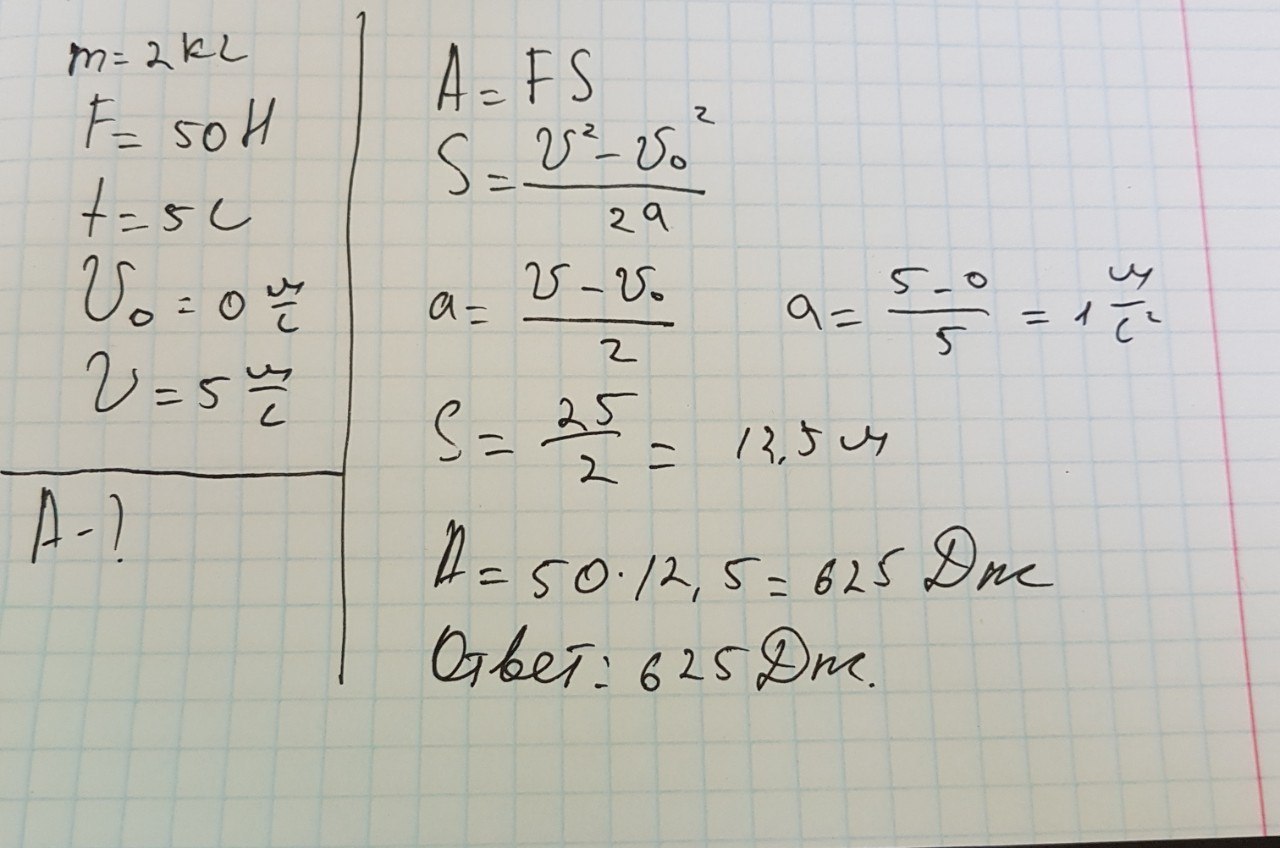 m = 2 кг
F = 50 Н
t = 5 с
υ₀ = 0 м/с
υ = 5 м/с
A - ?
A = FS
S = (υ² - υ₀²)/2a
a = (υ - υ₀)/2
a = (5 - 0)/5 = 1 м/с²
S = 25/2 = 12,5 м
A = 50 · 12,5 = 625 Дж
Ответ: 625 Дж.